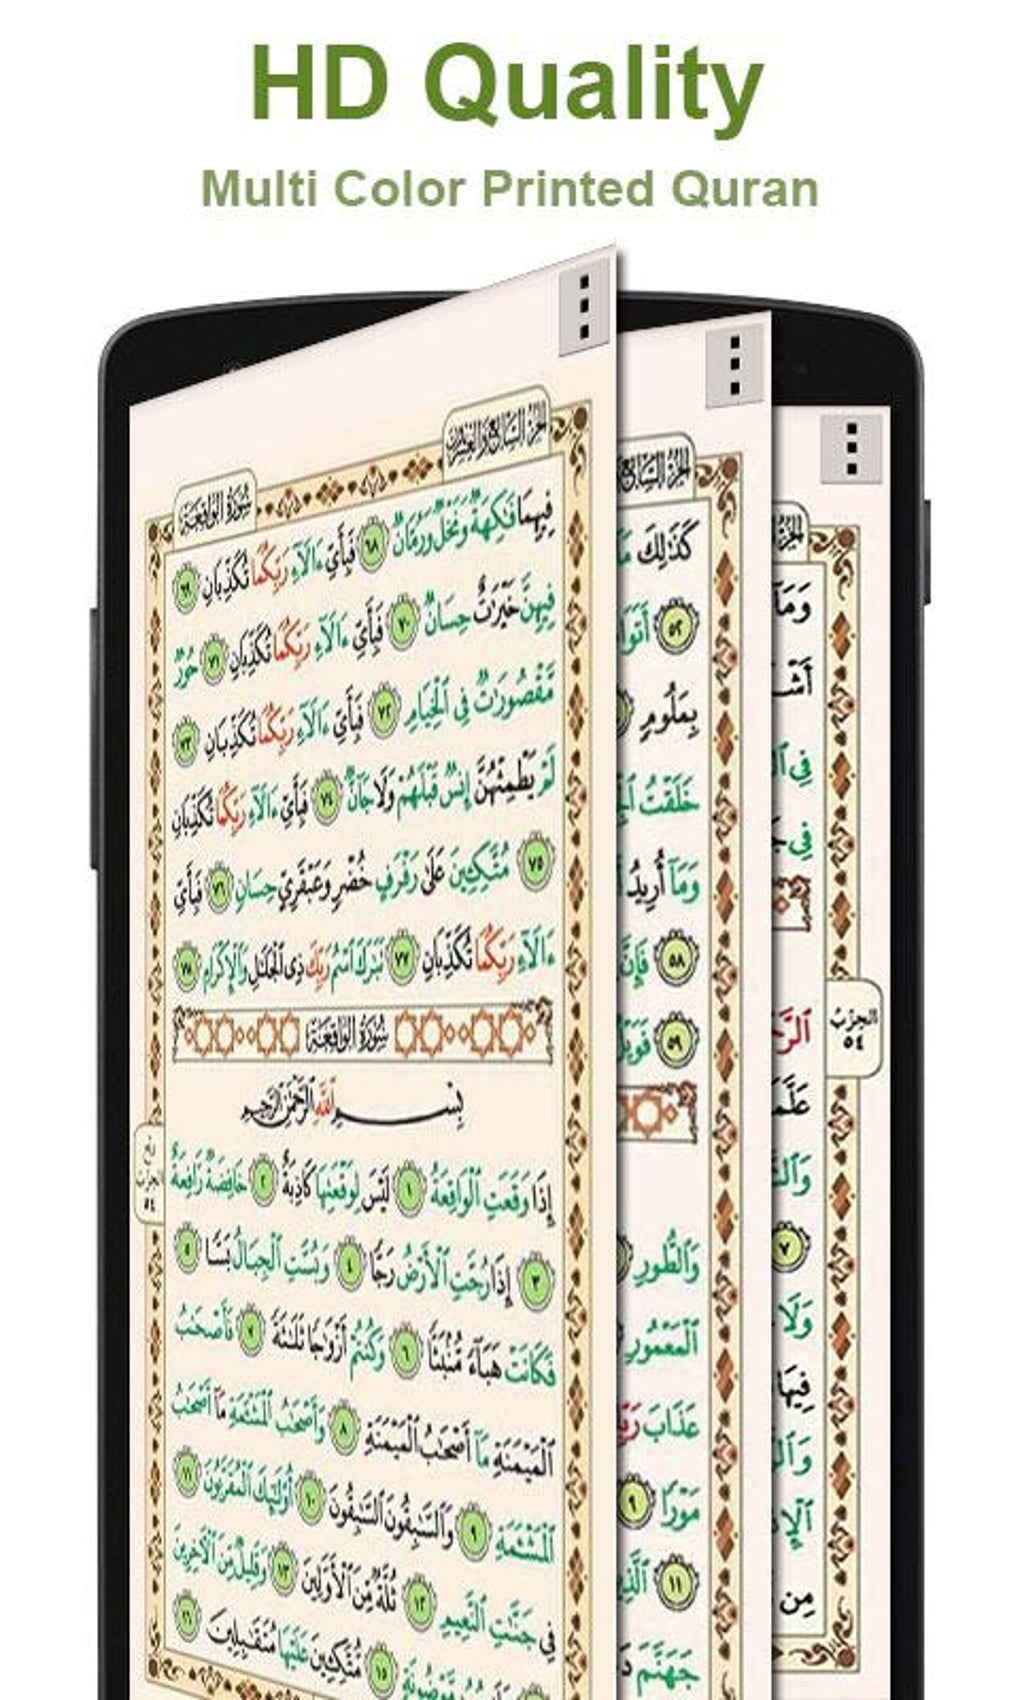 HD Quality
Multi Color Printed Quran
الجزء السابع والعشرون
سورة الواقعة
فِيهِمَا فَٰكِهَةٌ وَنَخْلٌ وَرُمَّانٌ ٦٨ فَبِأَيِّ ءَالَآءِ رَبِّكُمَا تُكَذِّبَانِ ٦٩
فِيهِنَّ خَيْرَٰتٌ حِسَانٌ ٧٠ فَبِأَيِّ ءَالَآءِ رَبِّكُمَا تُكَذِّبَانِ ٧١ حُورٌ
مَّقْصُورَٰتٌ فِي ٱلْخِيَامِ ٧٢ فَبِأَيِّ ءَالَآءِ رَبِّكُمَا تُكَذِّبَانِ ٧٣
لَمْ يَطْمِثْهُنَّ إِنسٌ قَبْلَهُمْ وَلَا جَآنٌّ ٧٤ فَبِأَيِّ ءَالَآءِ رَبِّكُمَا تُكَذِّبَانِ
٧٥ مُتَّكِـِٔينَ عَلَىٰ رَفْرَفٍ خُضْرٍ وَعَبْقَرِيٍّ حِسَانٍ ٧٦ فَبِأَيِّ
ءَالَآءِ رَبِّكُمَا تُكَذِّبَانِ ٧٧ تَبَٰرَكَ ٱسْمُ رَبِّكَ ذِي ٱلْجَلَٰلِ وَٱلْإِكْرَامِ ٧٨
سُورَةُ الوَاقِعَةِ
بِسْمِ ٱللَّهِ ٱلرَّحْمَٰنِ ٱلرَّحِيمِ
إِذَا وَقَعَتِ ٱلْوَاقِعَةُ ١ لَيْسَ لِوَقْعَتِهَا كَاذِبَةٌ ٢ خَافِضَةٌ رَّافِعَةٌ
٣ إِذَا رُجَّتِ ٱلْأَرْضُ رَجًّا ٤ وَبُسَّتِ ٱلْجِبَالُ بَسًّا ٥
فَكَانَتْ هَبَآءً مُّنۢبَثًّا ٦ وَكُنتُمْ أَزْوَٰجًا ثَلَٰثَةً ٧ فَأَصْحَٰبُ
ٱلْمَيْمَنَةِ مَآ أَصْحَٰبُ ٱلْمَيْمَنَةِ ٨ وَأَصْحَٰبُ ٱلْمَشْـَٔمَةِ مَآ أَصْحَٰبُ
ٱلْمَشْـَٔمَةِ ٩ وَٱلسَّٰبِقُونَ ٱلسَّٰبِقُونَ ١٠ أُو۟لَٰٓئِكَ ٱلْمُقَرَّبُونَ ١١
فِي جَنَّٰتِ ٱلنَّعِيمِ ١٢ ثُلَّةٌ مِّنَ ٱلْأَوَّلِينَ ١٣ وَقَلِيلٌ مِّنَ ٱلْءَاخِرِينَ
١٥ مُّتَّكِـِٔينَ عَلَيْهَا مُتَقَٰبِلِينَ ١٦
ربع
الحزب
٥٤
كَذَٰلِكَ
٥٢
بِمَلُومٍ
خَلَقْتُ
وَمَآ أُرِيدُ
٥٨ فَإِنَّ
٥٩
وَٱلطُّورِ
ٱلْمَعْمُورِ
عَذَابَ
مَوْرًا ٩
١١
جَهَنَّمَ
وَمَا
فِي
فِي
عَلَّمَ
٧
وَلَا
فِيهَا
مِن
الحزب
٥٤